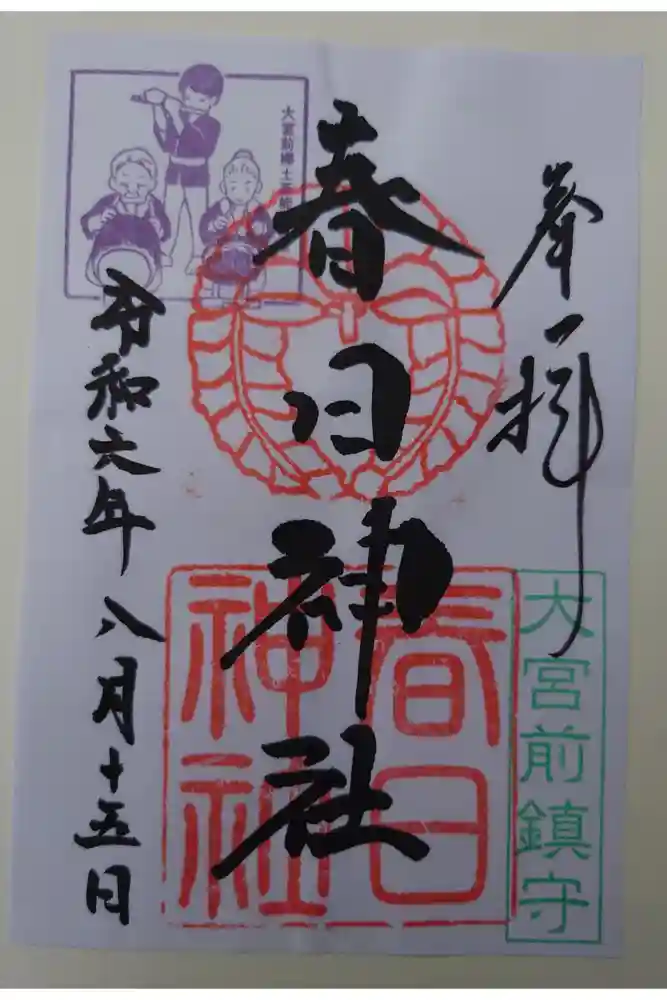 奉拝
大宮前鎮守
春日神社
春日
神社
大宮前郷土芸能
令和六年八月十五日